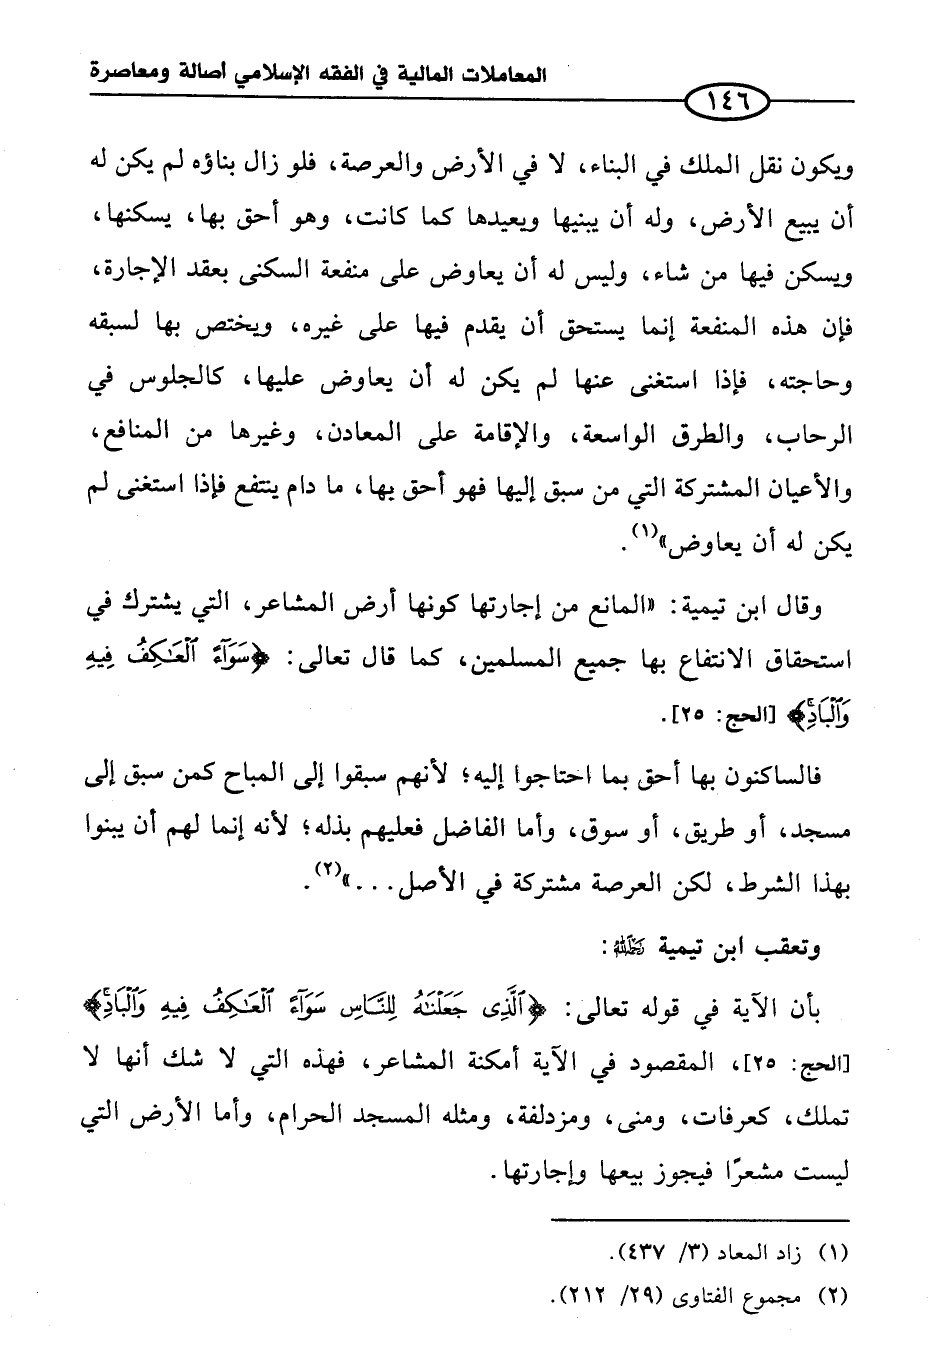 المعاملات المالية في الفقه الإسلامي أصالة ومعاصرة
١٤٦
ويكون نقل الملك في البناء، لا في الأرض والعرصة، فلو زال بناؤه لم يكن له
أن يبيع الأرض، وله أن يبنيها ويعيدها كما كانت، وهو أحق بها، يسكنها،
ويسكن فيها من شاء، وليس له أن يعاوض على منفعة السكنى بعقد الإجارة،
فإن هذه المنفعة إنما يستحق أن يقدم فيها على غيره، ويختص بها لسبقه
وحاجته، فإذا استغنى عنها لم يكن له أن يعاوض عليها، كالجلوس في
الرحاب، والطرق الواسعة، والإقامة على المعادن، وغيرها من المنافع،
والأعيان المشتركة التي من سبق إليها فهو أحق بها، ما دام ينتفع فإذا استغنى لم
يكن له أن يعاوض»(١).
وقال ابن تيمية: «المانع من إجارتها كونها أرض المشاعر، التي يشترك في
استحقاق الانتفاع بها جميع المسلمين، كما قال تعالى: ﴿سَوَآءً ٱلۡعَٰكِفُ فِيهِ
وَٱلۡبَادِۚ﴾ [الحج: ٢٥].
فالساكنون بها أحق بما احتاجوا إليه؛ لأنهم سبقوا إلى المباح كمن سبق إلى
مسجد، أو طريق، أو سوق، وأما الفاضل فعليهم بذله؛ لأنه إنما لهم أن يبنوا
بهذا الشرط، لكن العرصة مشتركة في الأصل...»(٢).
وتعقب ابن تيمية رحمه الله:
بأن الآية في قوله تعالى: ﴿ٱلَّذِي جَعَلۡنَٰهُ لِلنَّاسِ سَوَآءً ٱلۡعَٰكِفُ فِيهِ وَٱلۡبَادِۚ﴾
[الحج: ٢٥]، المقصود في الآية أمكنة المشاعر، فهذه التي لا شك أنها لا
تملك، كعرفات، ومنى، ومزدلفة، ومثله المسجد الحرام، وأما الأرض التي
ليست مشعرًا فيجوز بيعها وإجارتها.
(١) زاد المعاد (٣/ ٤٣٧).
(٢) مجموع الفتاوى (٢٩/ ٢١٢).